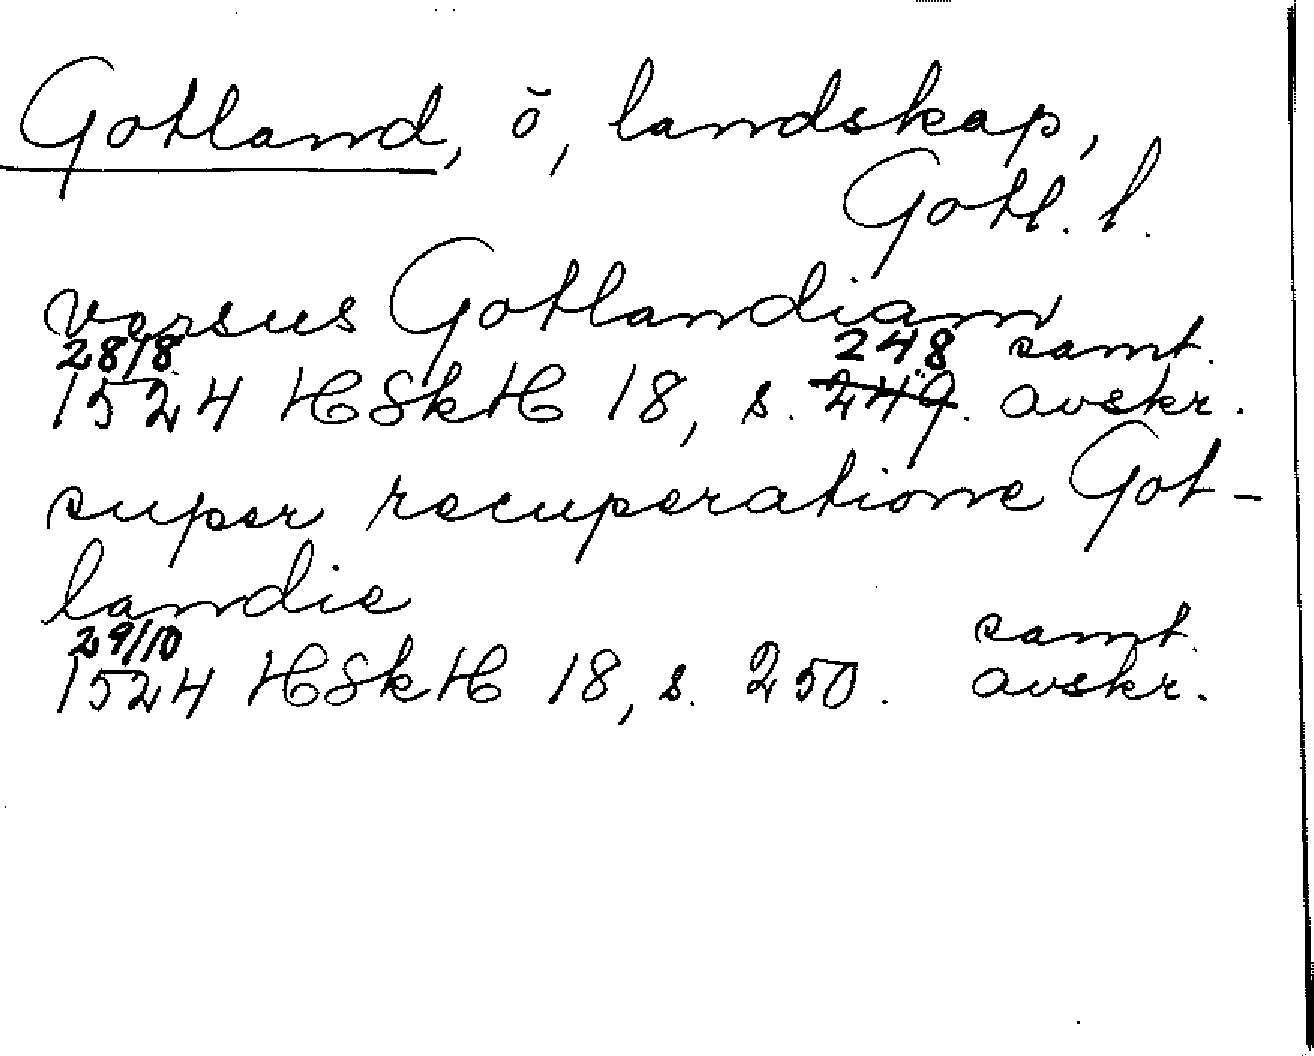 Gotland, ö, landskap,
Gotl. l.
versus Gotlandiam
28/8 248 samt.
1524 HSkH 18, s. 249. avskr.
super recuperatione Got-
landie
29/10 samt.
1524 HSkH 18, s. 250. avskr.